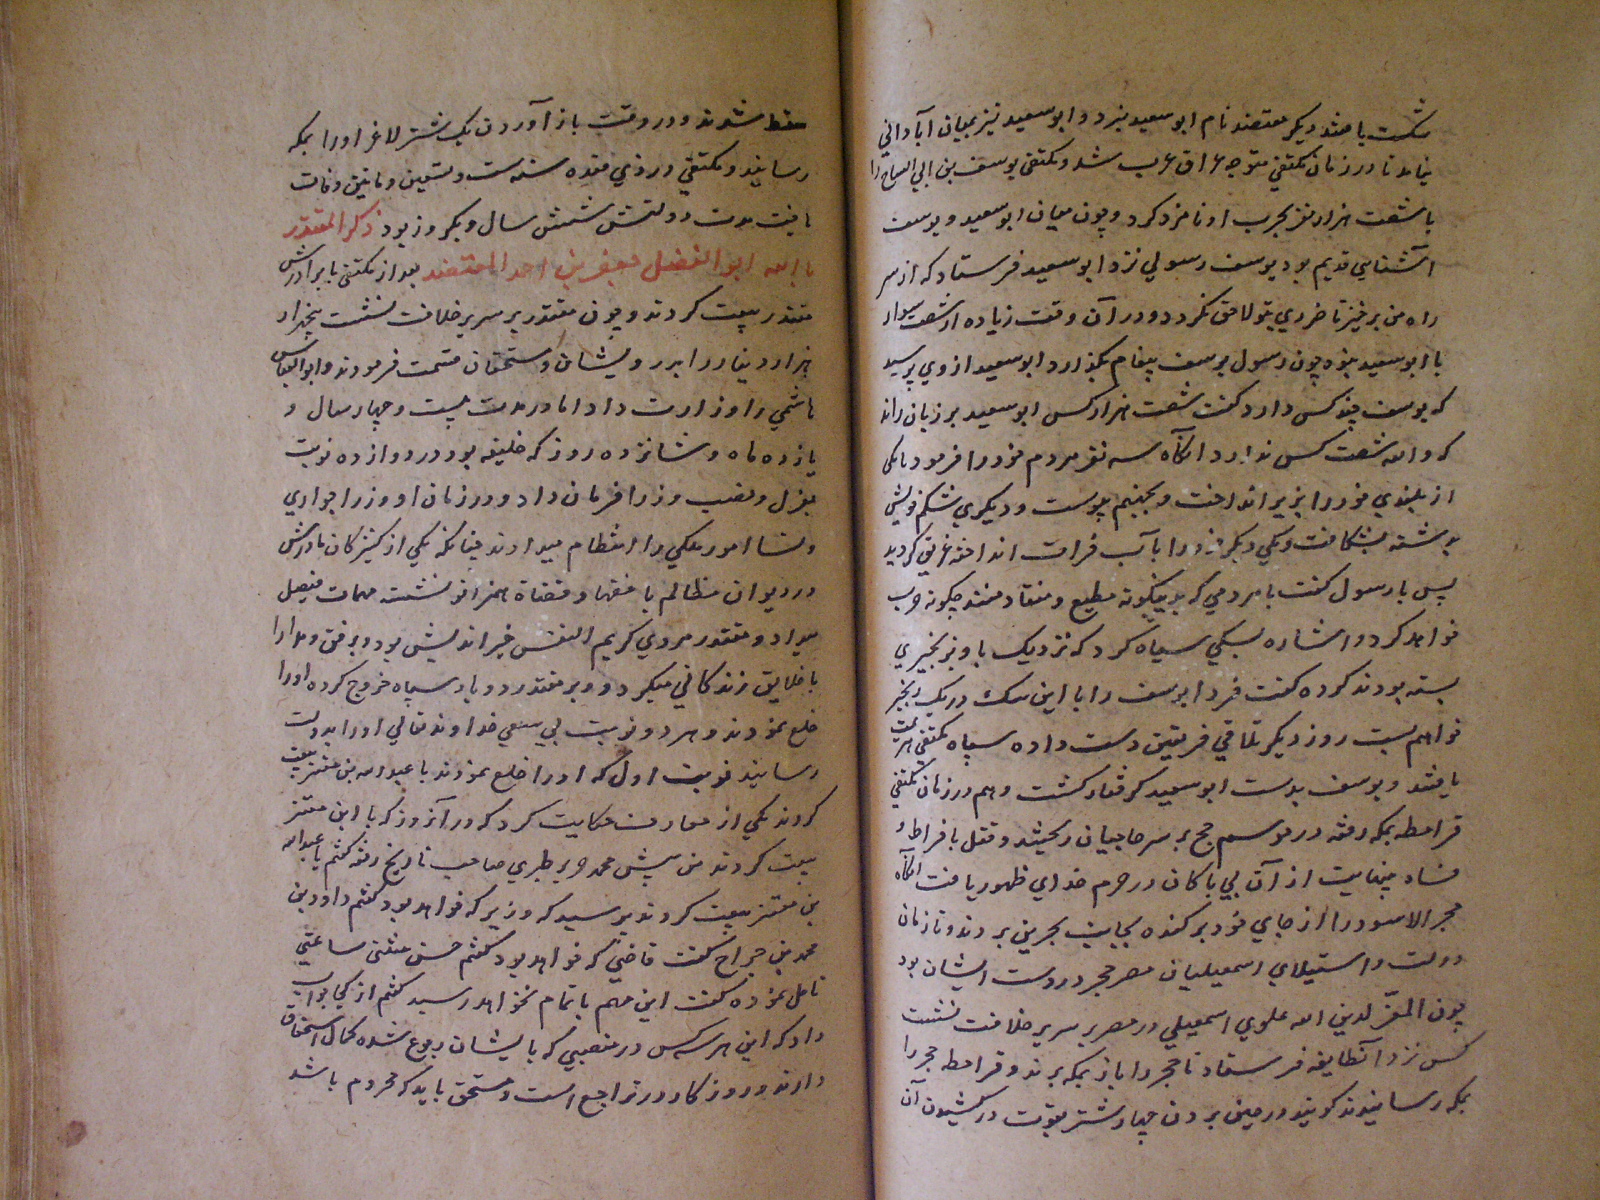 شکست یافتند دیگر معتضد نام ابو سعید نبرد و ابو سعید نیز بمیان آبادانی
نیامد تا در زمان مکتفی متوجه عراق عرب شد و مکتفی یوسف بن ابی الساج را
با شصت هزار نفر بحرب او نامزد کرد و چون میان ابو سعید و یوسف
آشنایی قدیم بود یوسف رسولی نزد ابو سعید فرستاد که از سر
راه من برخیز تا ضرری بتو لاحق نگردد و در آن وقت زیاده از شصت سوار
با ابو سعید نبوه چون رسول یوسف پیغام بگذارد ابو سعید از وی پرسید
که یوسف چند کس دارد گفت شصت هزار کس ابو سعید بر زبان راند
که والله شصت کس ندارد آنگاه سه نفر مردم خود را فرمود تا یکی
از بلندی خود را بزیر انداخت و بجهنم پیوست و دیگری شکم خویش
بدشنه بشکافت و یکی دیگر خود را بآب فرات انداخته غریق گردید
پس با رسول گفت با مردمی که بدینگونه مطیع و منقاد منند چگونه حرب
خواهد کرد و اشاره بسگی سیاه کرد که نزدیک باو بزنجیری
بسته بودند کرده گفت فردا یوسف را با این سگ در یک زنجیر
خواهم بست روز دیگر تلاقی فریقین دست داده سپاه مکتفی هزیمت
یافتند و یوسف بدست ابو سعید گرفتار گشت و هم در زمان مکتفی
قرامطه بمکه رفته در موسم حج بر سر حاجیان ریختند و قتل بافراط و
فساد بینهایت از آن بی باکان در حرم خدای ظهور یافت آنگاه
حجر الاسود را از جای خود برکنده بجانب بحرین بردند و تا زمان
دولت و استیلای اسمعیلیان مصر حجر در دست ایشان بود
چون المعز لدین الله علوی اسمعیلی در مصر بر سریر خلافت نشست
کس نزد آنطایفه فرستاد تا حجر را باز بمکه برند و قرامطه حجر را
بمکه رسانیدند گویند در حین بردن چهار شتر بقوت در کشیدن آن
سقط شدند و در وقت باز آوردن یک شتر لاغر او را بمکه
رسانید و مکتفی در ذی قعده سنه ست و تسعین و ماتین وفات
یافت مدت دولتش شش سال و یکروز بود ذکر المقتدر
بالله ابو الفضل جعفر بن احمد المعتضد بعد از مکتفی با برادرش
مقتدر بیعت کردند و چون مقتدر بر سریر خلافت نشست پنجهزار
هزار دینار را بر درویشان و مستحقان قسمت فرمودند و ابو العباس
هاشمی را وزارت داد اما در مدت بیست و چهار سال و
یازده ماه و شانزده روز که خلیفه بود در دوازده نوبت
بعزل و نصب وزرا فرمان داد و در زمان او وزرا جواری
و نسا امور ملکی را انتظام میدادند چنانکه یکی از کنیزکان مادرش
در دیوان مظالم با فقها و قضاة همزانو نشسته مهمات فیصل
میداد و مقتدر مردی کریم النفس خیر اندیش بود و برفق و مدارا
با خلایق زندگانی میکرد و بر مقتدر دو بار سپاه خروج کرده او را
خلع نمودند و هر دو نوبت بی سعی خداوند تعالی او را بدولت
رسانید نوبت اول که او را خلع نمودند با عبد الله بن معتز بیعت
کردند یکی از معارف حکایت کرد که در آنروز که با ابن معتز
بیعت کردند من پیش محمد جریر طبری صاحب تاریخ رفته گفتم با عبد الله
بن معتز بیعت کردند پرسید که وزیر که خواهد بود گفتم داود بن
محمد بن جراح گفت قاضی که خواهد بود گفتم حسن مثنی ساعتی
تامل نموده گفت این مهم باتمام نخواهد رسید گفتم از کجا جواب
داد که این هر سه کس در منصبی که بایشان رجوع شده کمال استحقاق
دارند و روزگار در تراجع است و مستحق باید که محروم باشد